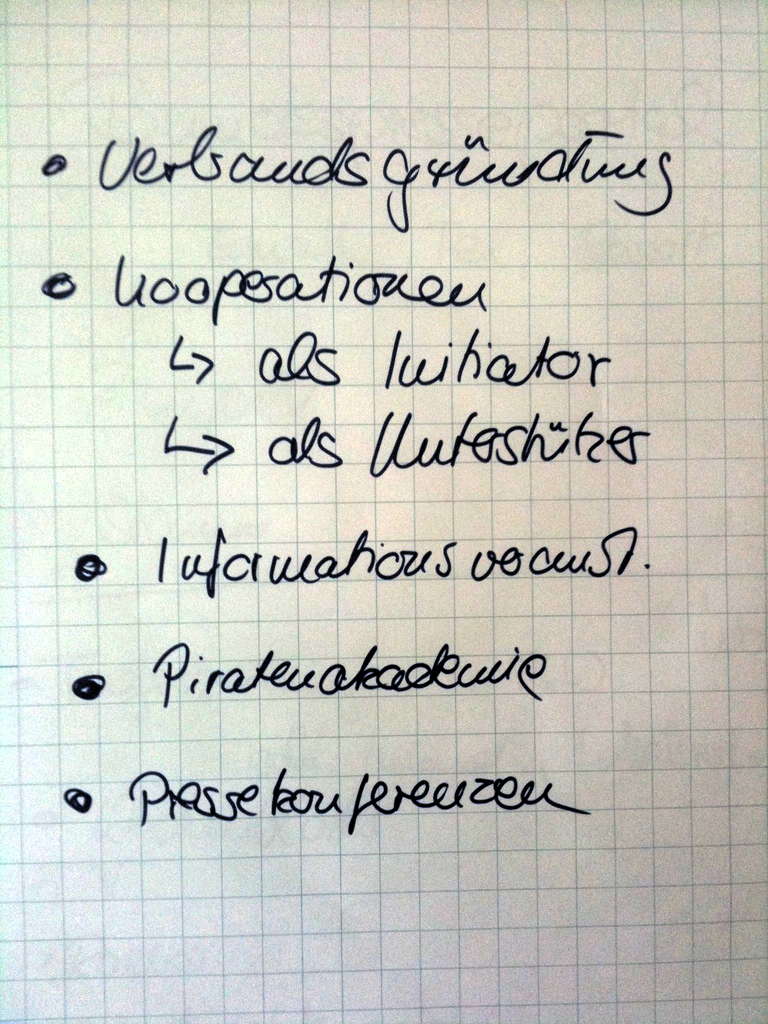 • Verbandsgründung
• Kooperationen
↳ als Initiator
↳ als Unterstützer
• Informationsveranst.
• Piratenakademie
• Pressekonferenzen